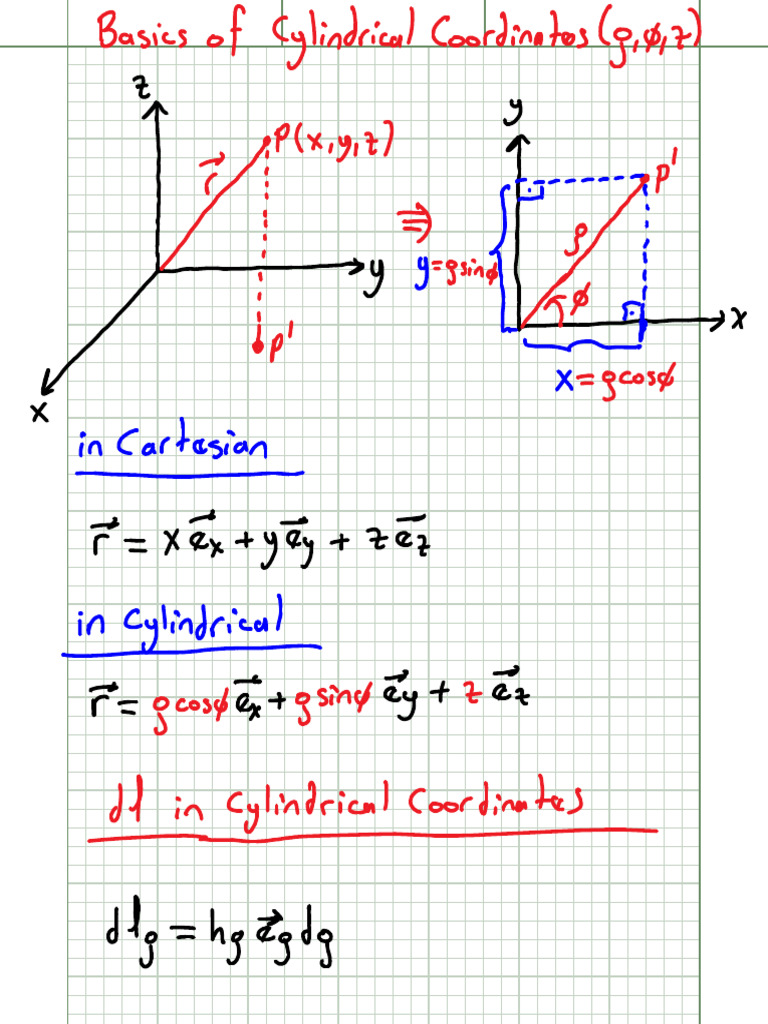 Basics of Cylindrical Coordinates (ρ, φ, z)
z
P(x, y, z)
r⃗
y
x
P'
⇛
y
P'
ρ
φ
y = ρsinφ
x
x = ρcosφ
in Cartesian
r⃗ = x e⃗x + y e⃗y + z e⃗z
in Cylindrical
r⃗ = ρcosφ e⃗x + ρsinφ e⃗y + z e⃗z
dl in Cylindrical Coordinates
dlρ = hρ e⃗ρ dρ